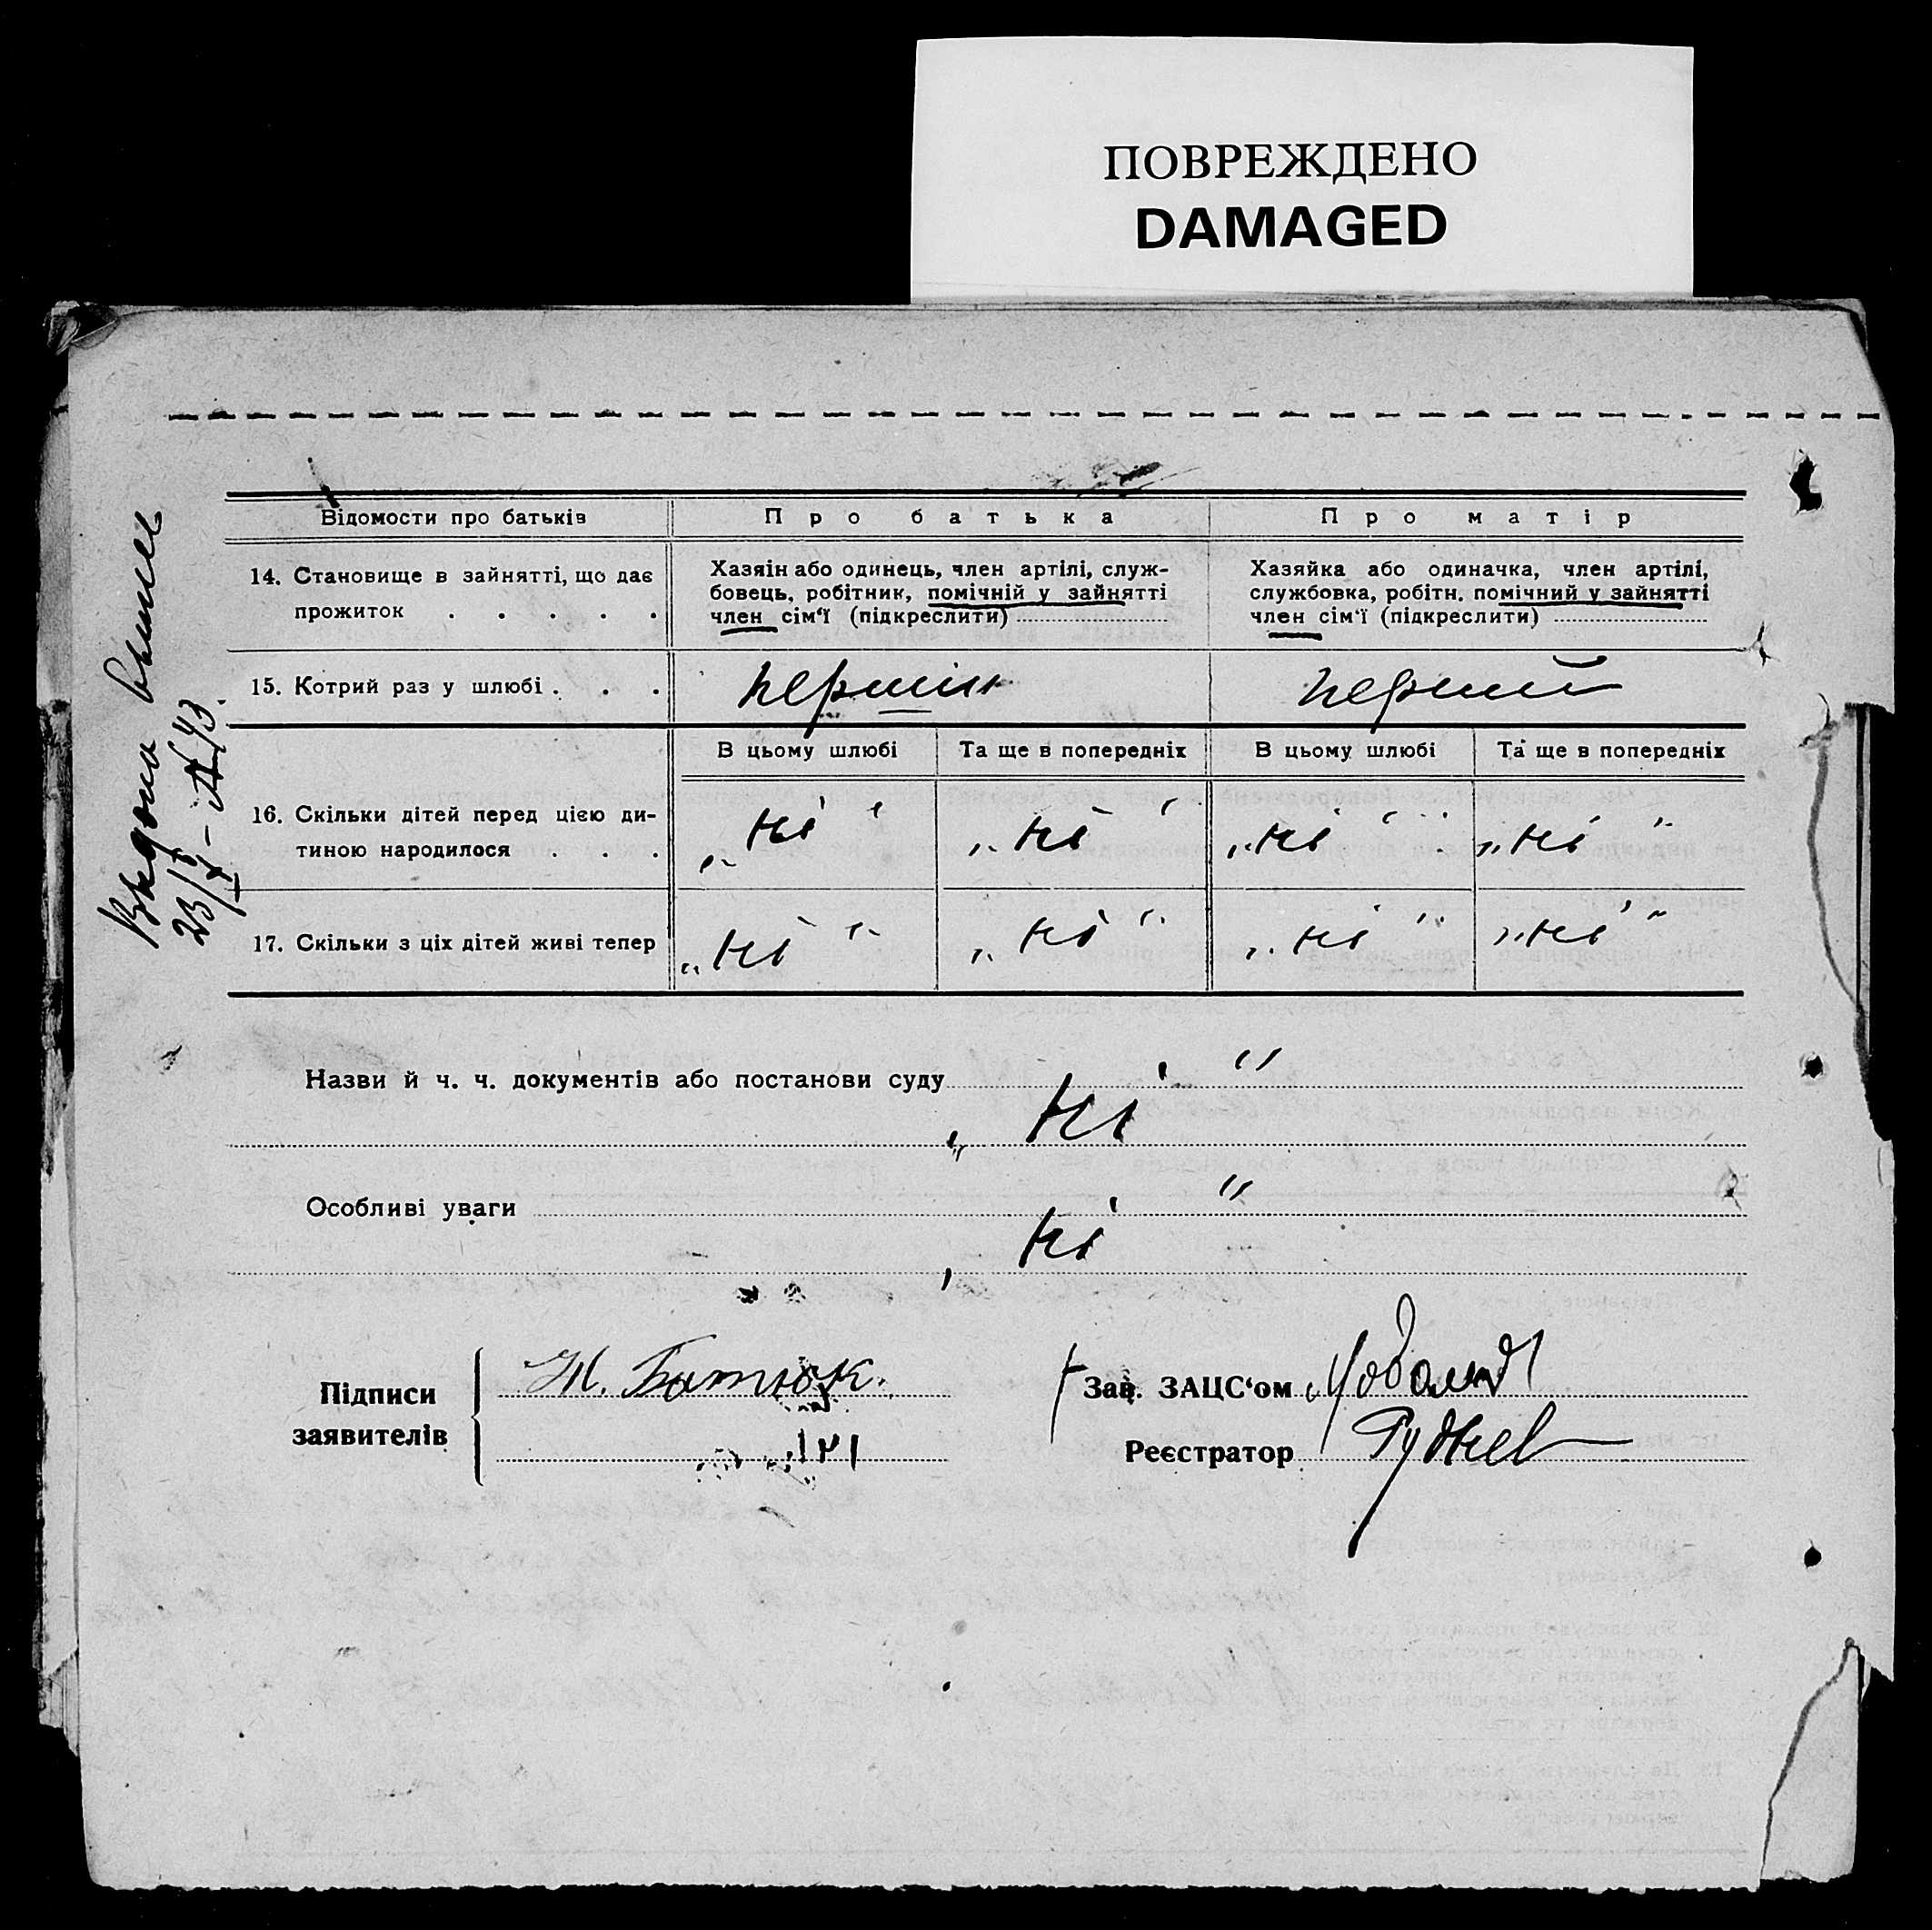 ПОВРЕЖДЕНО
DAMAGED
Выдана выпись
23/VI–43.
Відомости про батьків | Про батька | Про матір
14. Становище в зайнятті, що дає прожиток . . . . .
Хазяїн або одинець, член артілі, служ-
бовець, робітник, помічній у зайнятті
член сім‘ї (підкреслити)
Хазяйка або одиначка, член артілі,
службовка, робітн. помічний у зайнятті
член сім‘ї (підкреслити)
15. Котрий раз у шлюбі . . . перший перший
В цьому шлюбі | Та ще в попередніх | В цьому шлюбі | Та ще в попередніх
16. Скільки дітей перед цією ди-
тиною народилося . . . „ні“ „ні“ „ні“ „ні“
17. Скільки з ціх дітей живі тепер „ні“ „ні“ „ні“ „ні“
Назви й ч. ч. документів або постанови суду
„ні“
Особливі уваги
„ні“
Підписи
заявителів
Батюк.
Зав. ЗАЦС‘ом
Реєстратор Руднев